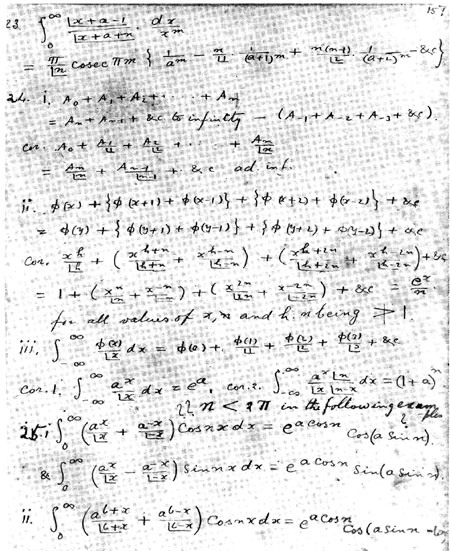 157
23. ∫_0^∞ |x+a-1 / |x+a+n · dx / x^m
= π/|n cosec πm { 1/a^m - n/|1 · 1/(a+1)^m + n(n-1)/|2 · 1/(a+2)^m - &c }
24. i. A_0 + A_1 + A_2 + ..... + A_n
= A_n + A_{n-1} + &c to infinity - (A_{-1} + A_{-2} + A_{-3} + &c).
Cor. A_0 + A_1/|1 + A_2/|2 + ..... + A_n/|n
= A_n/|n + A_{n-1}/|n-1 + &c ad. inf.
ii. φ(x) + {φ(x+1) + φ(x-1)} + {φ(x+2) + φ(x-2)} + &c
= φ(y) + {φ(y+1) + φ(y-1)} + {φ(y+2) + φ(y-2)} + &c
Cor. x^h/|h + (x^{h+n}/|h+n + x^{h-n}/|h-n) + (x^{h+2n}/|h+2n + x^{h-2n}/|h-2n) + &c
= 1 + (x^n/|n + x^{-n}/|-n) + (x^{2n}/|2n + x^{-2n}/|-2n) + &c = e^x/n
for all values of x, n and h. n being ≯ 1.
iii. ∫_{-∞}^∞ φ(x)/|x dx = φ(0) + φ(1)/|1 + φ(2)/|2 + φ(3)/|3 + &c
Cor. 1. ∫_{-∞}^∞ a^x/|x dx = e^a, Cor. 2. ∫_{-∞}^∞ a^x |n / |x |n-x dx = (1+a)^n
n < 2π in the following examples
25. i ∫_0^∞ (a^x/|x + a^{-x}/|-x) Cos nx dx = e^{a cos n} Cos(a sin n).
& ∫_0^∞ (a^x/|x - a^{-x}/|-x) Sin nx dx = e^{a cos n} Sin(a sin n).
ii. ∫_0^∞ (a^{b+x}/|b+x + a^{b-x}/|b-x) Cos nx dx = e^{a cos n} Cos(a sin n - bn